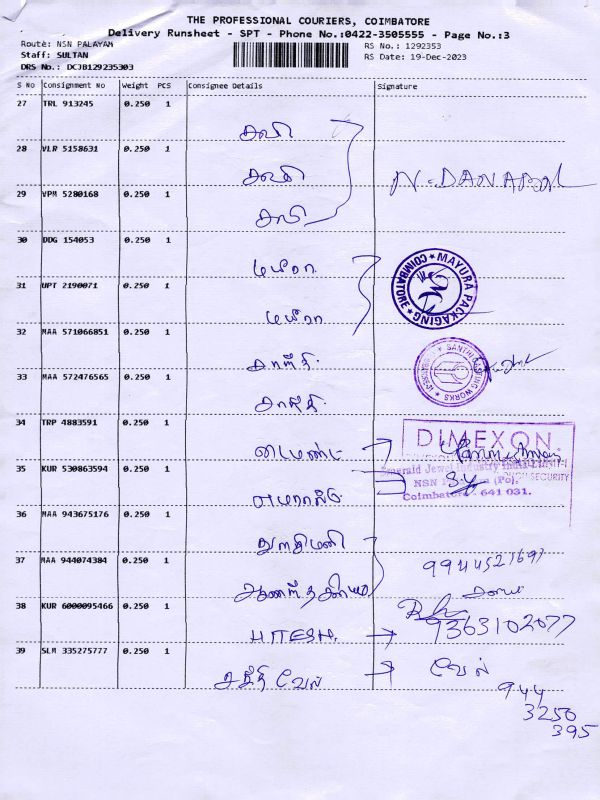 THE PROFESSIONAL COURIERS, COIMBATORE
Delivery Runsheet - SPT - Phone No.:0422-3505555 - Page No.:3
Route: NSN PALAYAM
RS No.: 1292353
Staff: SULTAN
RS Date: 19-Dec-2023
DRS No.: DCJB129235303
S No Consignment No Weight PCS Consignee Details Signature
27 TRL 913245 0.250 1
சுவி
28 VLR 5158631 0.250 1
சுவி
N. DANAPAL
29 VPM 5280168 0.250 1
சுவி
30 DDG 154053 0.250 1
மயூரா
MAYURA PACKAGING
COIMBATORE
31 UPT 2190071 0.250 1
மயூரா
32 MAA 571066851 0.250 1
சாந்தி
SANTHI WORKS
33 MAA 572476565 0.250 1
சாந்தி
34 TRP 4883591 0.250 1
DIMEXON
டைமண்ட்
35 KUR 530863594 0.250 1
Emerald Jewel Industry India Limit
SECURITY
NSN (Po),
Coimbatore 641 031.
எமரால்டு
36 MAA 943675176 0.250 1
துரதிமணி
37 MAA 944074384 0.250 1
38 KUR 6000095466 0.250 1
HITESH →
9363102077
39 SLM 335275777 0.250 1
சக்தி வேல் → வேல்
944
3250
395